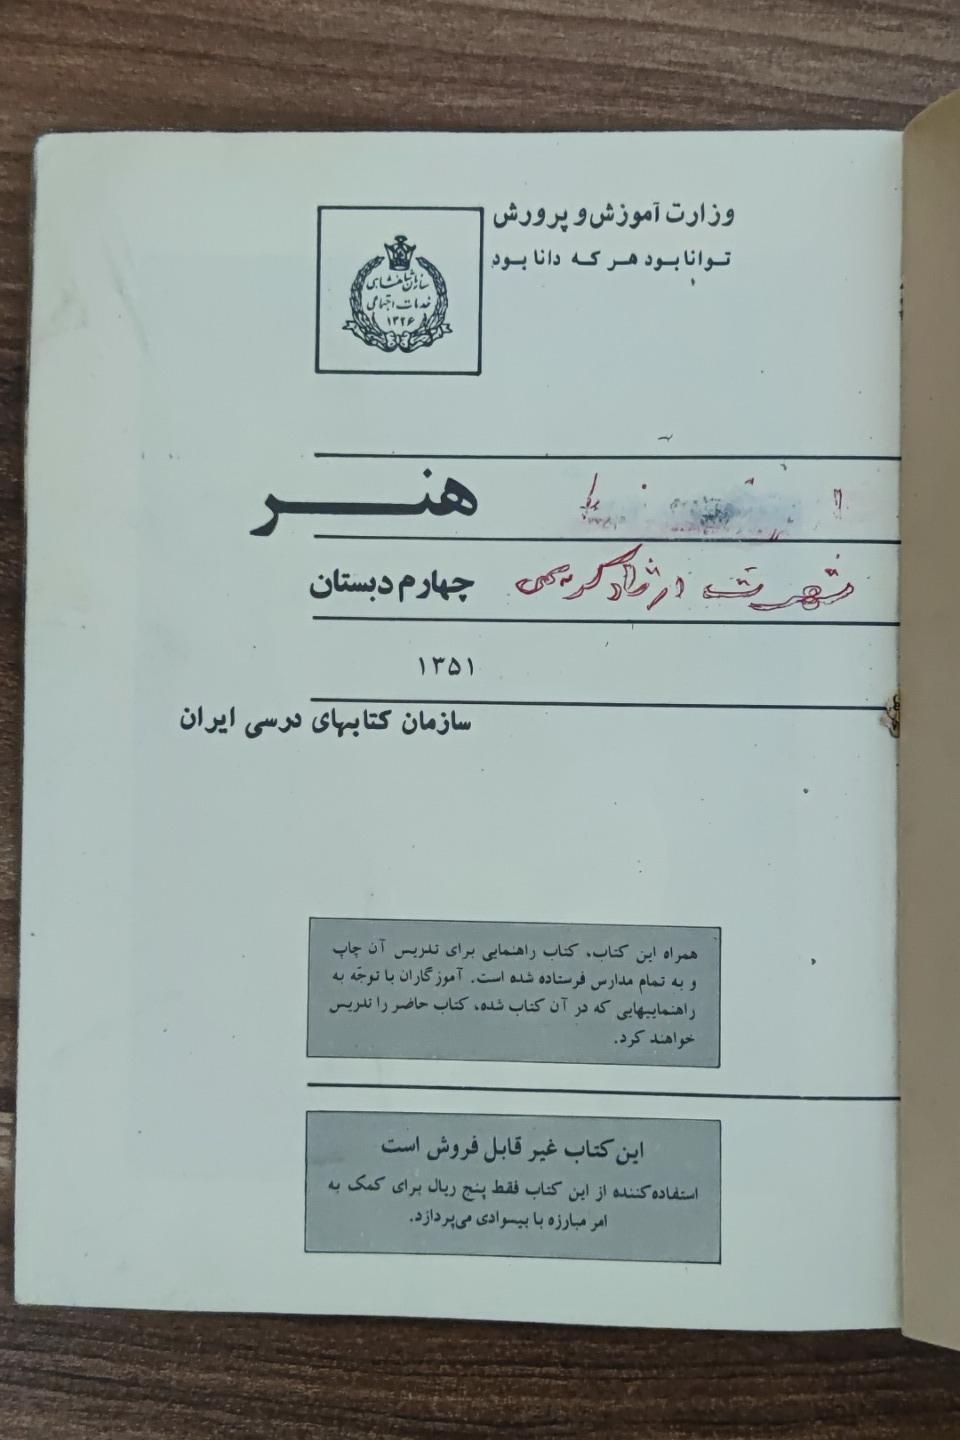 وزارت آموزش و پرورش
توانا بود هر که دانا بود
سازمان شاهنشاهی
خدمات اجتماعی
۱۳۲۶
هنر
چهارم دبستان
شهرت
کریمی
۱۳۵۱
سازمان کتابهای درسی ایران
همراه این کتاب، کتاب راهنمایی برای تدریس آن چاپ
و به تمام مدارس فرستاده شده است. آموزگاران با توجّه به
راهنماییهایی که در آن کتاب شده، کتاب حاضر را تدریس
خواهند کرد.
این کتاب غیر قابل فروش است
استفاده‌کننده از این کتاب فقط پنج ریال برای کمک به
امر مبارزه با بیسوادی می‌پردازد.